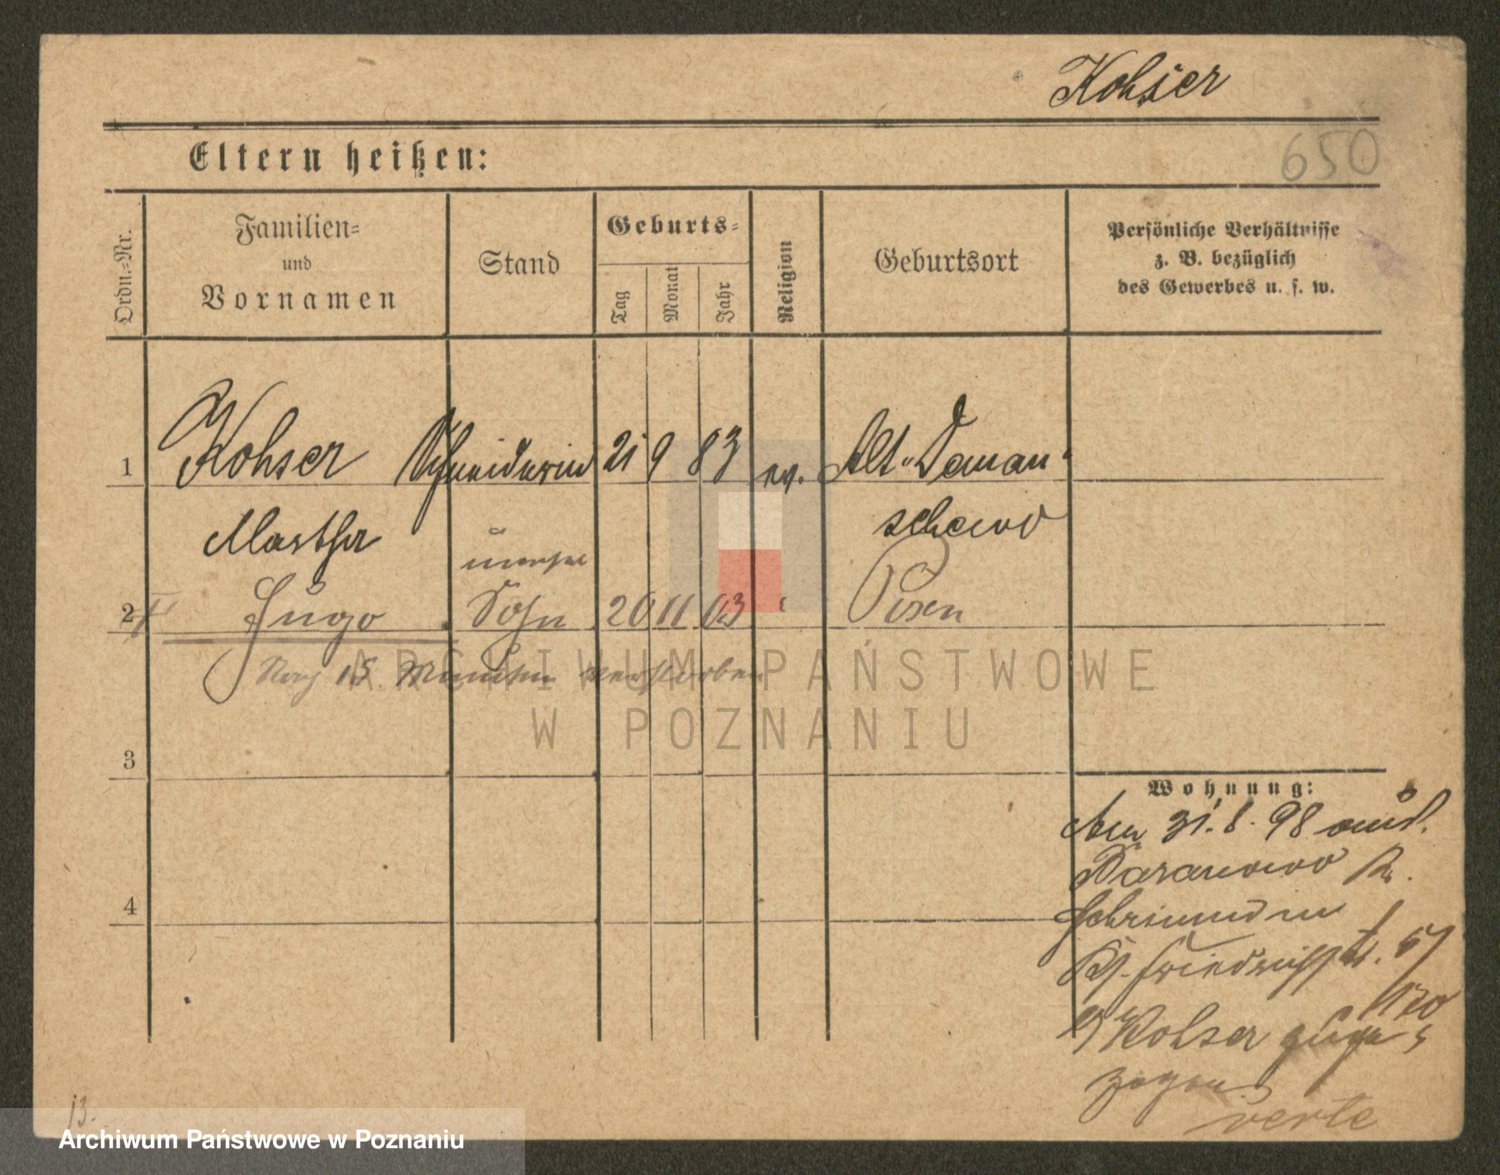 Kohser
650
Eltern heißen:
Ordn.-Nr.
Familien-
und
Vornamen
Stand
Geburts-
Tag
Monat
Jahr
Religion
Geburtsort
Persönliche Verhältnisse
z. B. bezüglich
des Gewerbes u. s. w.
1 Kohser Schneiderin 21 9 83 ev. Alt-Deman-
Martha schewo
unehel
2 Hugo Sohn 20 11 03 Posen
Nach 15 Minuten verstorben
ARCHIWUM PAŃSTWOWE
W POZNANIU
3
4
Wohnung:
Am 31.8.98 aus
Baranowo Kr.
Schrimm in
Friedrichstr.
Kohser zuge
zogen
verte
13.
Archiwum Państwowe w Poznaniu